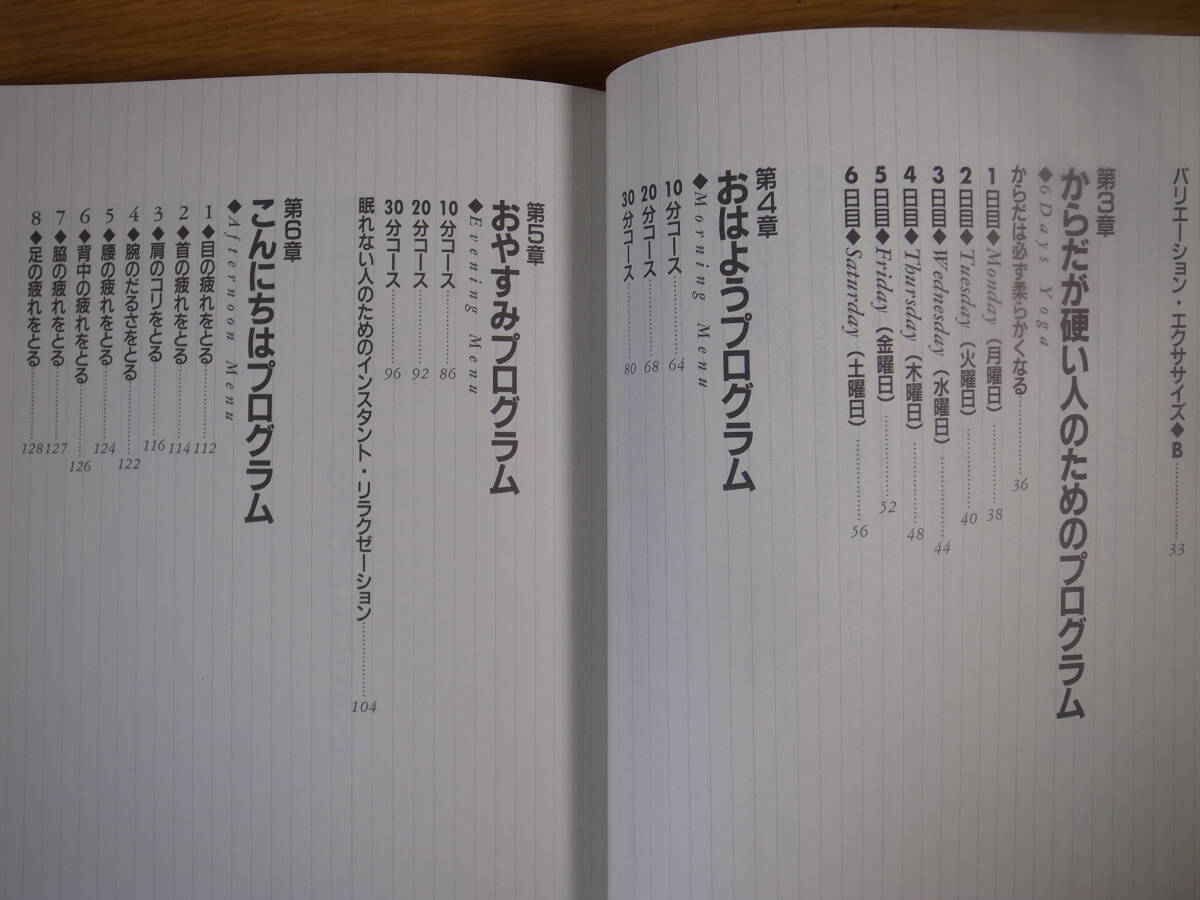 バリエーション・エクササイズ◆B…………33
第3章
からだが硬い人のためのプログラム
◆6 Days Yoga
からだは必ず柔らかくなる…………36
1日目◆Monday（月曜日）…………38
2日目◆Tuesday（火曜日）…………40
3日目◆Wednesday（水曜日）…………44
4日目◆Thursday（木曜日）…………48
5日目◆Friday（金曜日）…………52
6日目◆Saturday（土曜日）…………56
第4章
おはようプログラム
◆Morning Menu
10分コース…………64
20分コース…………68
30分コース…………80
第5章
おやすみプログラム
◆Evening Menu
10分コース…………86
20分コース…………92
30分コース…………96
眠れない人のためのインスタント・リラクゼーション…………104
第6章
こんにちはプログラム
◆Afternoon Menu
1◆目の疲れをとる…………112
2◆首の疲れをとる…………114
3◆肩のコリをとる…………116
4◆腕のだるさをとる…………122
5◆腰の疲れをとる…………124
6◆背中の疲れをとる…………126
7◆脇の疲れをとる…………127
8◆足の疲れをとる…………128